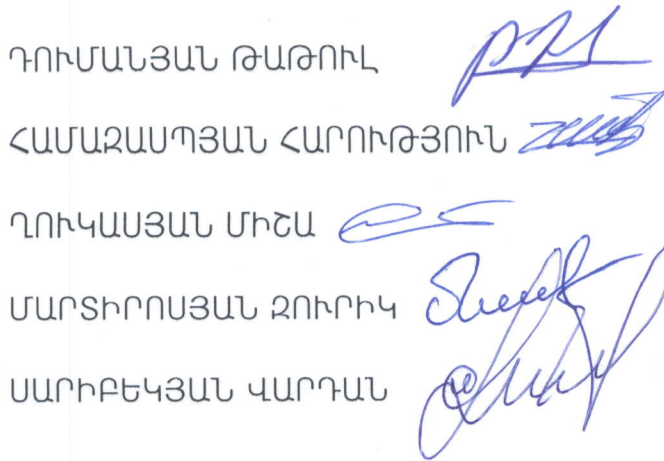 ԴՈՒՄԱՆՅԱՆ ԹԱԹՈՒԼ
ՀԱՄԱԶԱՍՊՅԱՆ ՀԱՐՈՒԹՅՈՒՆ
ՂՈՒԿԱՍՅԱՆ ՄԻՇԱ
ՄԱՐՏԻՐՈՍՅԱՆ ԶՈՒՐԻԿ
ՍԱՐԻԲԵԿՅԱՆ ՎԱՐԴԱՆ